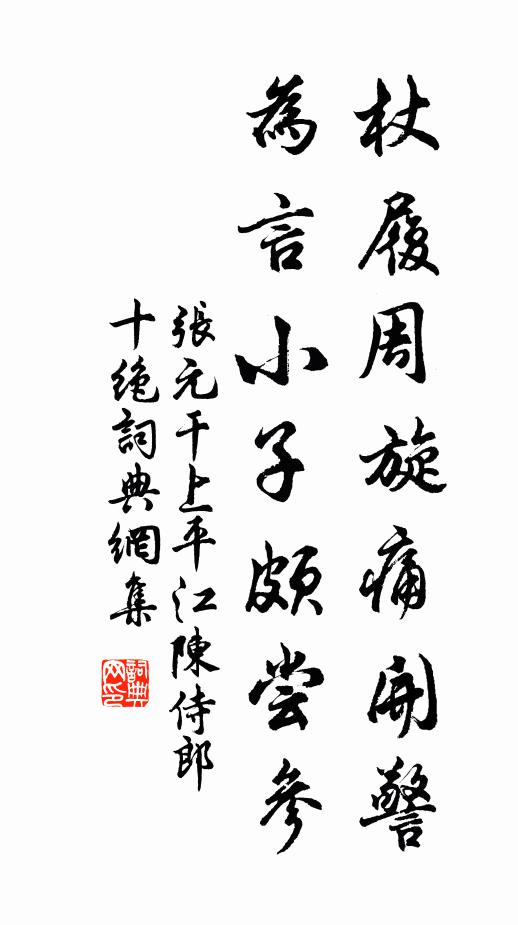 杖履周旋痛開警
為言小子頗尝參
張元干上平江陳侍郎
十绝詞典網集
詞典网印